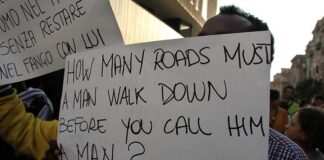 UOMO NEL
SENZA RESTARE
NEL FANGO CON LUI
HOW MANY ROADS MUST
A MAN WALK DOWN
BEFORE YOU CALL HIM
A MAN?